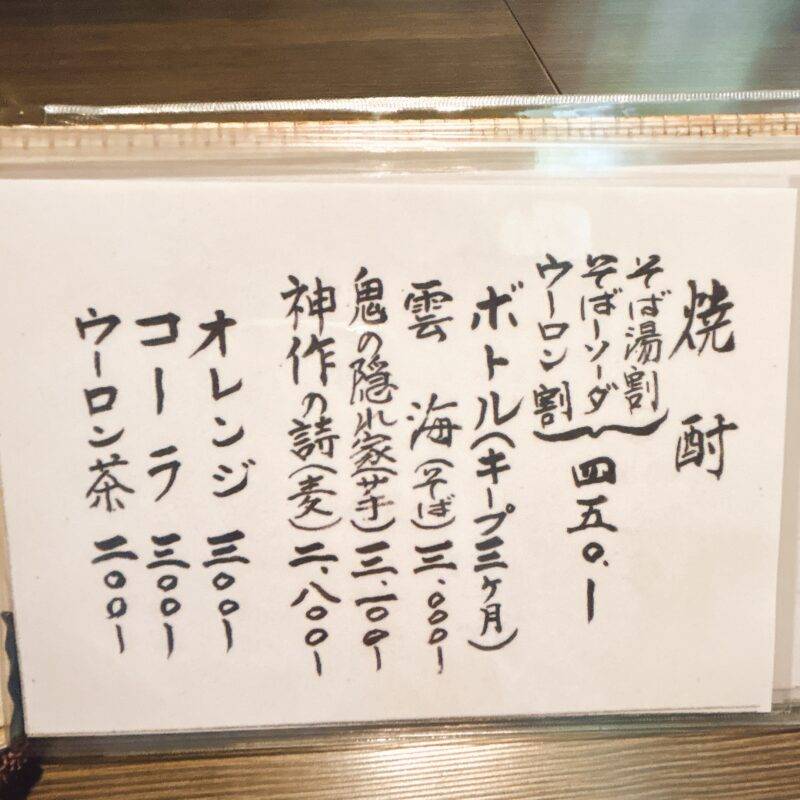 焼酎
そば湯割
そばソーダ
ウーロン割 四五〇.ー
ボトル(キープ三ヶ月)
雲海(そば)三.〇〇〇ー
鬼の隠れ家(サチ)三.一〇〇ー
神作の詩(麦)二.八〇〇ー
オレンジ 三〇〇ー
コーラ 三〇〇ー
ウーロン茶 二〇〇ー